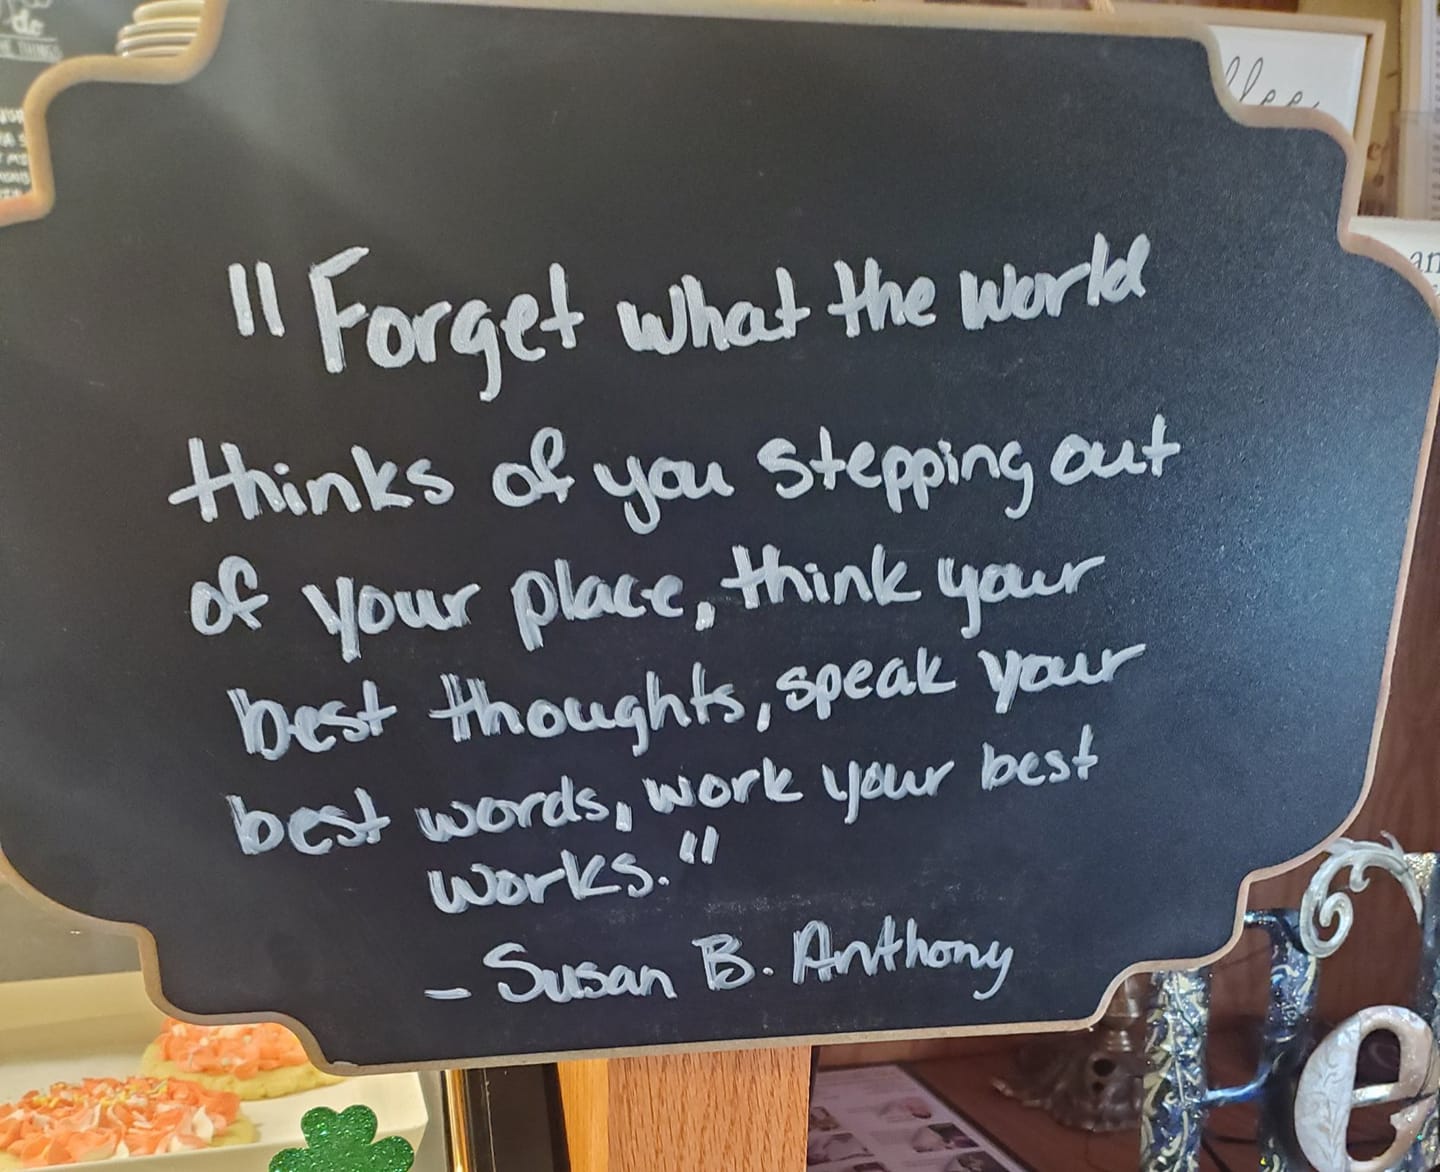 do
THE THINGS
"Forget what the world
thinks of you stepping out
of your place, think your
best thoughts, speak your
best words, work your best
works."
- Susan B. Anthony
an
He